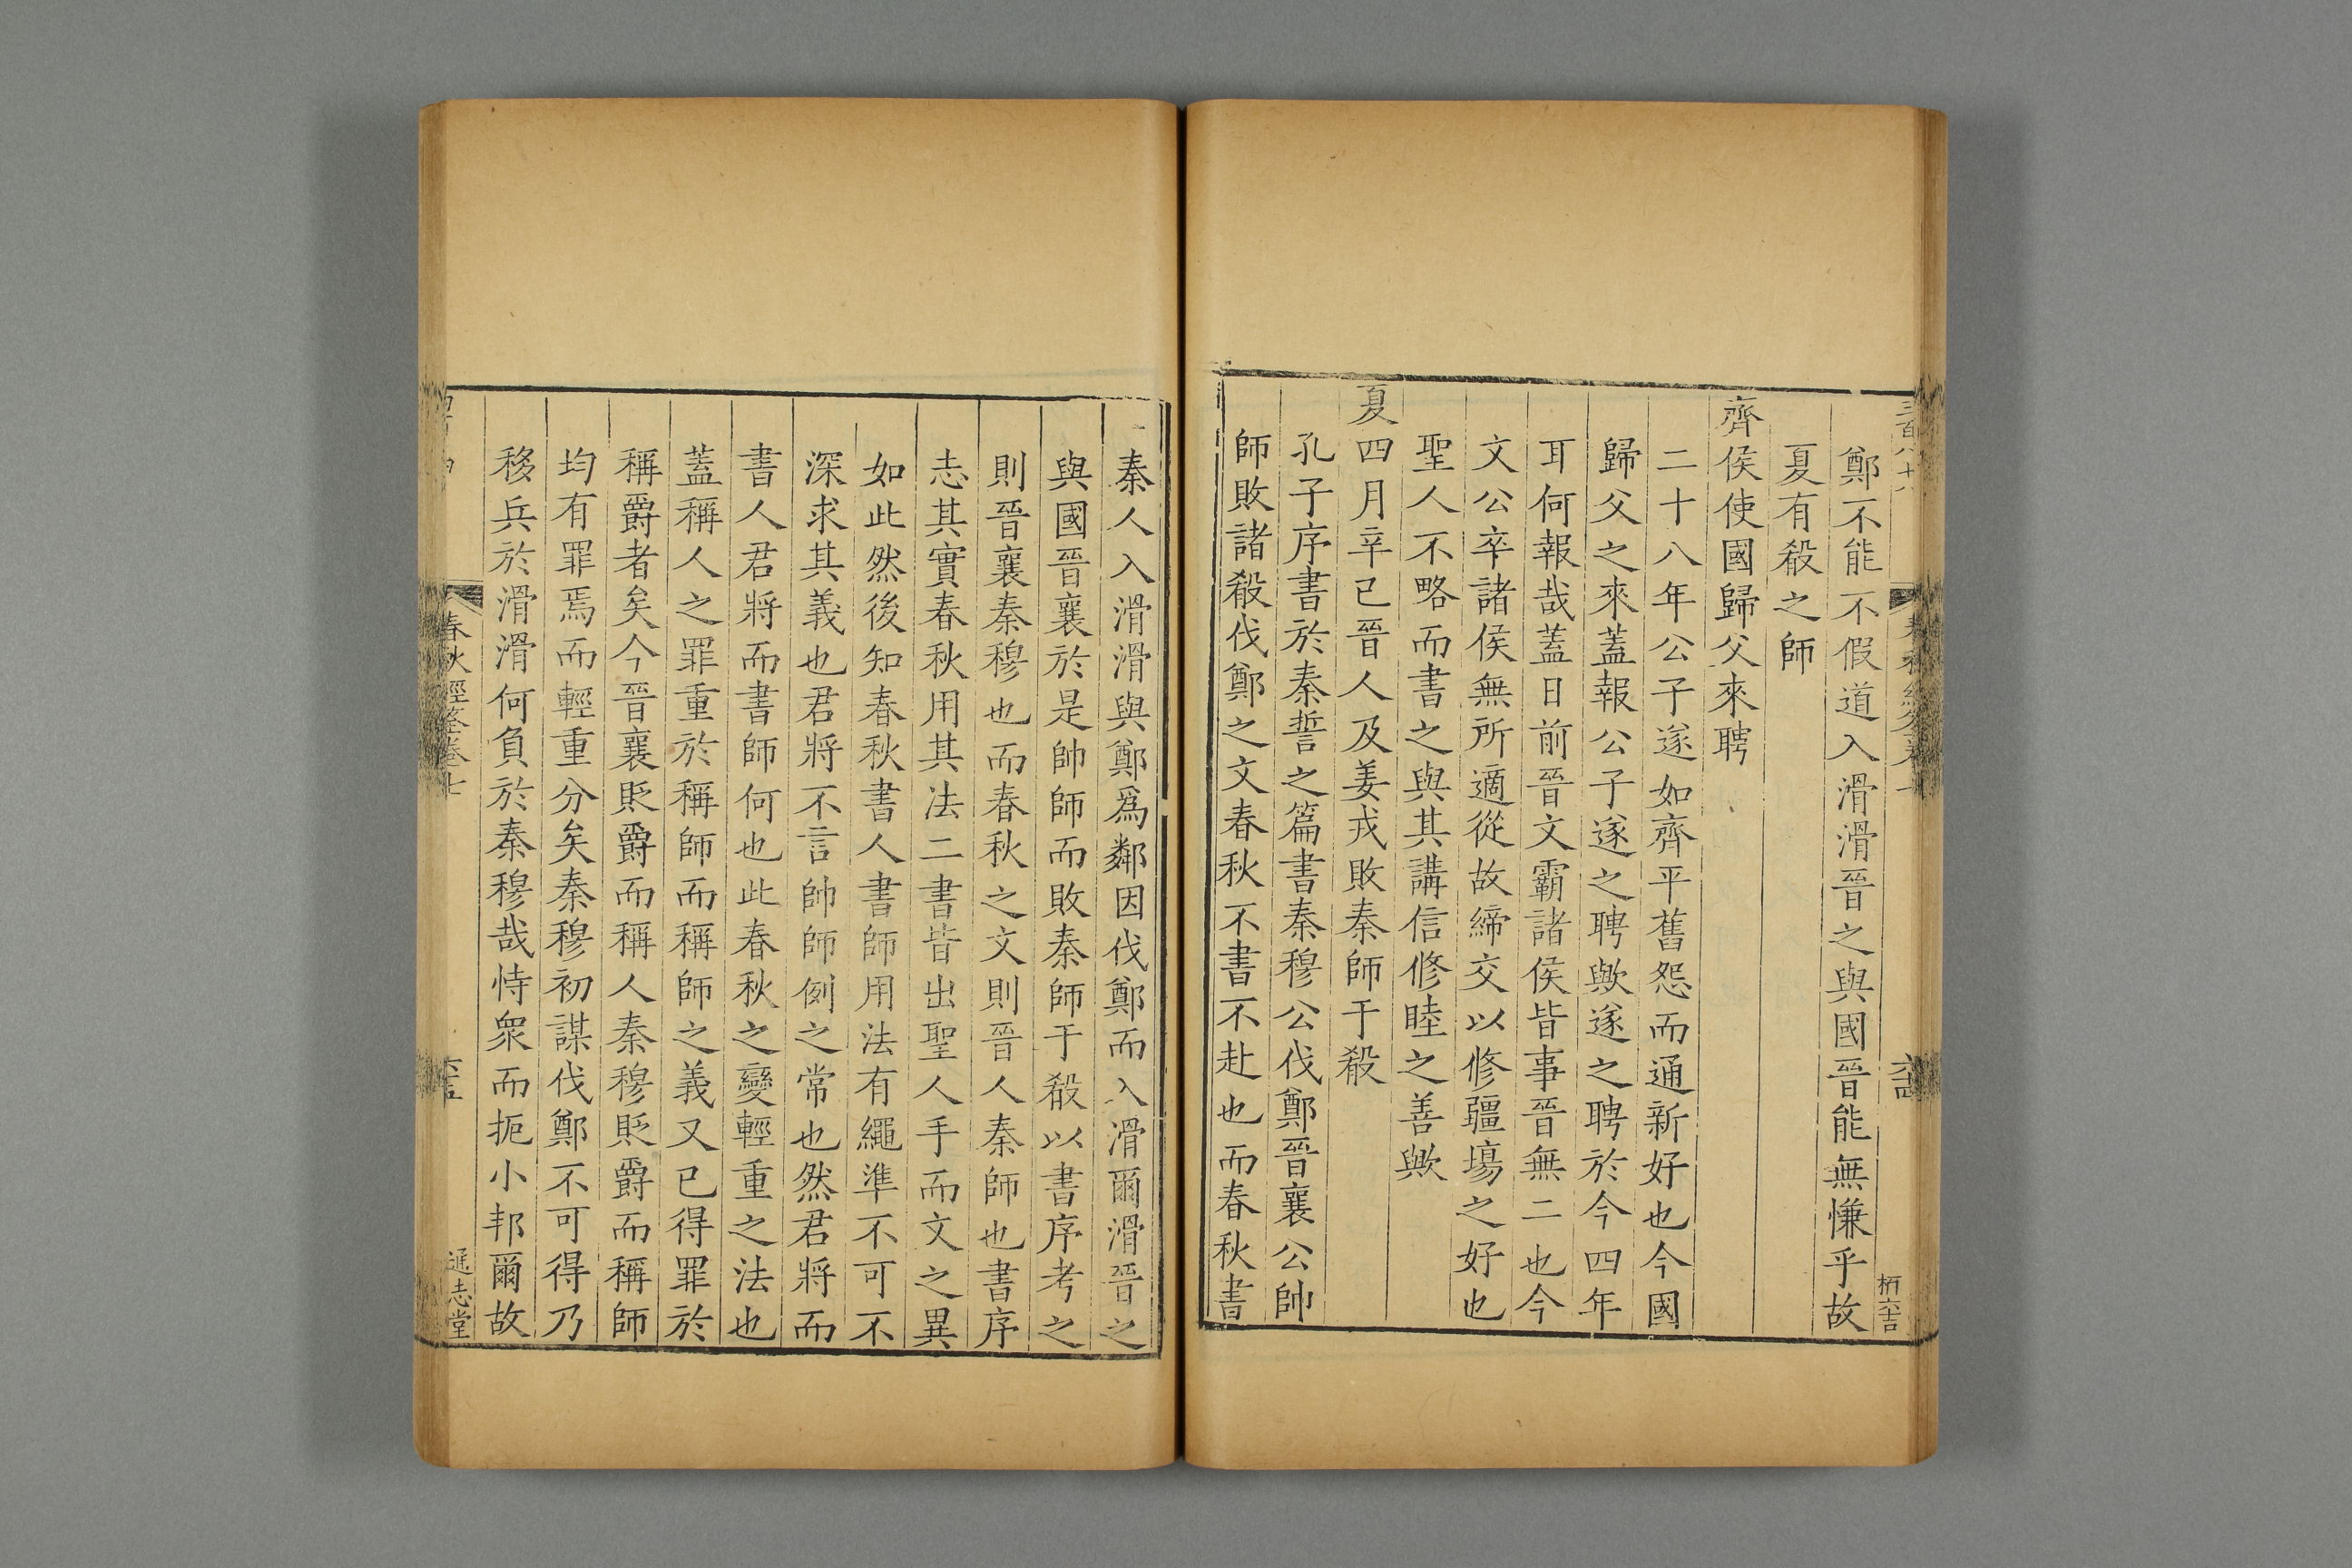 鄭不能不假道入滑滑晉之與國晉能無慊乎故
夏有殽之師
齊侯使國歸父來聘
二十八年公子遂如齊平舊怨而通新好也今國
歸父之來蓋報公子遂之聘歟遂之聘於今四年
耳何報哉蓋日前晉文霸諸侯皆事晉無二也今
文公卒諸侯無所適從故締交以修疆埸之好也
聖人不略而書之與其講信修睦之善歟
夏四月辛巳晉人及姜戎敗秦師于殽
孔子序書於秦誓之篇書秦穆公伐鄭晉襄公帥
師敗諸殽伐鄭之文春秋不書不赴也而春秋書
秦人入滑滑與鄭爲鄰因伐鄭而入滑爾滑晉之
與國晉襄於是帥師而敗秦師于殽以書序考之
則晉襄秦穆也而春秋之文則晉人秦師也書序
志其實春秋用其法二書皆出聖人手而文之異
如此然後知春秋書人書師用法有繩準不可不
深求其義也君將不言帥師例之常也然君將而
書人君將而書師何也此春秋之變輕重之法也
蓋稱人之罪重於稱師而稱師之義又已得罪於
稱爵者矣今晉襄貶爵而稱人秦穆貶爵而稱師
均有罪焉而輕重分矣秦穆初謀伐鄭不可得乃
移兵於滑滑何負於秦穆哉恃衆而扼小邦爾故
春秋經筌卷七
通志堂